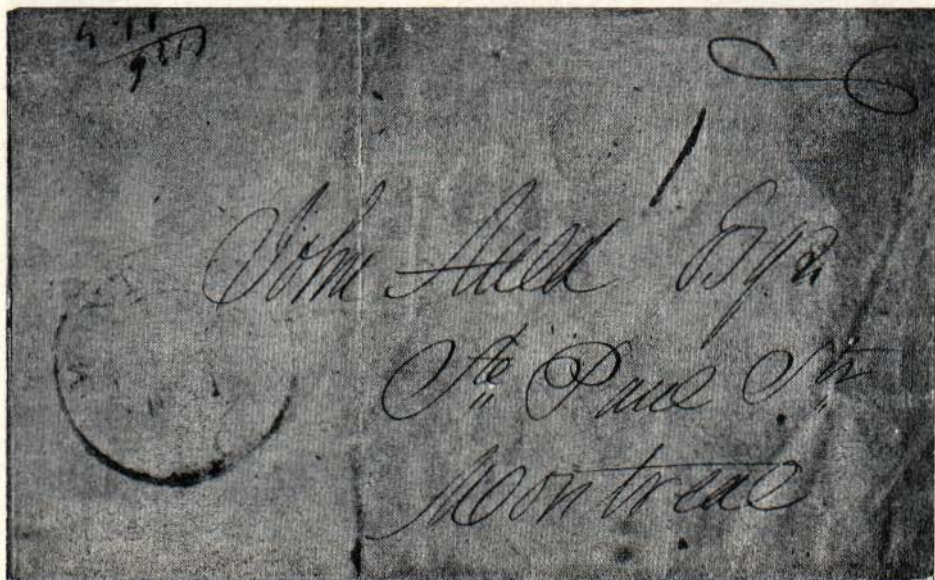 John Auld Esqr
St Paul Str
Montreal